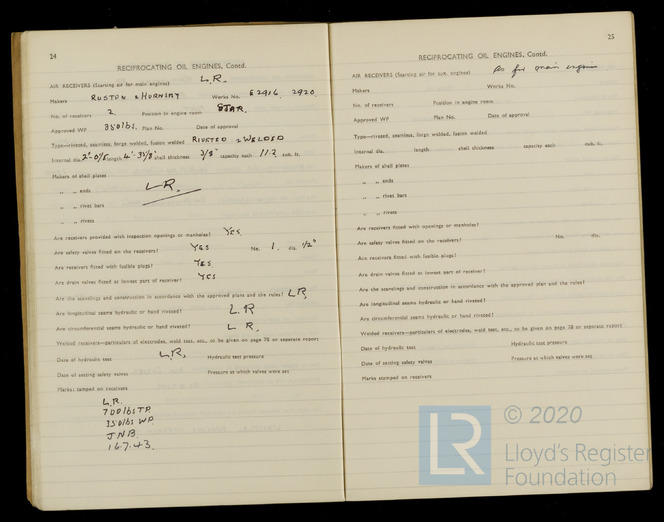 24
RECIPROCATING OIL ENGINES, Contd.
AIR RECEIVERS (Starting air for main engines) L.R.
Makers RUSTON & HORNSBY Works No. 62916. 2920.
No. of receivers 2 Position in engine room STAR.
Approved WP 350lbs. Plan No. Date of approval
Type—riveted, seamless, forge welded, fusion welded RIVETED & WELDED
Internal dia. length shell thickness 3/8" capacity each 11.2 cub. ft.
Makers of shell plates
„ „ ends L.R.
„ „ rivet bars
„ „ rivets
Are receivers provided with inspection openings or manholes? YES.
Are safety valves fitted on the receivers? YES No. 1. dia. 1/2"
Are receivers fitted with fusible plugs? YES.
Are drain valves fitted at lowest part of receiver? YES
Are the scantlings and construction in accordance with the approved plans and the rules? L.R.
Are longitudinal seams hydraulic or hand riveted? L.R
Are circumferential seams hydraulic or hand riveted? L.R.
Welded receivers—particulars of electrodes, weld test, etc., to be given on page 78 or separate report
Date of hydraulic test L.R. Hydraulic test pressure
Date of setting safety valves Pressure at which valves were set
Marks stamped on receivers
L.R.
700lbs TP.
350lbs WP
JNB
16.7.43.
25
RECIPROCATING OIL ENGINES, Contd.
AIR RECEIVERS (Starting air for aux. engines) As for main engines
Makers Works No.
No. of receivers Position in engine room
Approved WP Plan No. Date of approval
Type—riveted, seamless, forge welded, fusion welded
Internal dia. length shell thickness capacity each cub. ft.
Makers of shell plates
„ „ ends
„ „ rivet bars
„ „ rivets
Are receivers fitted with openings or manholes?
Are safety valves fitted on the receivers? No. dia.
Are receivers fitted with fusible plugs?
Are drain valves fitted at lowest part of receiver?
Are the scantlings and construction in accordance with the approved plan and the rules?
Are longitudinal seams hydraulic or hand riveted?
Are circumferential seams hydraulic or hand riveted?
Welded receivers—particulars of electrodes, weld test, etc., to be given on page 78 or separate report
Date of hydraulic test Hydraulic test pressure
Date of setting safety valves Pressure at which valves were set
Marks stamped on receivers
LR
© 2020
Lloyd's Register
Foundation